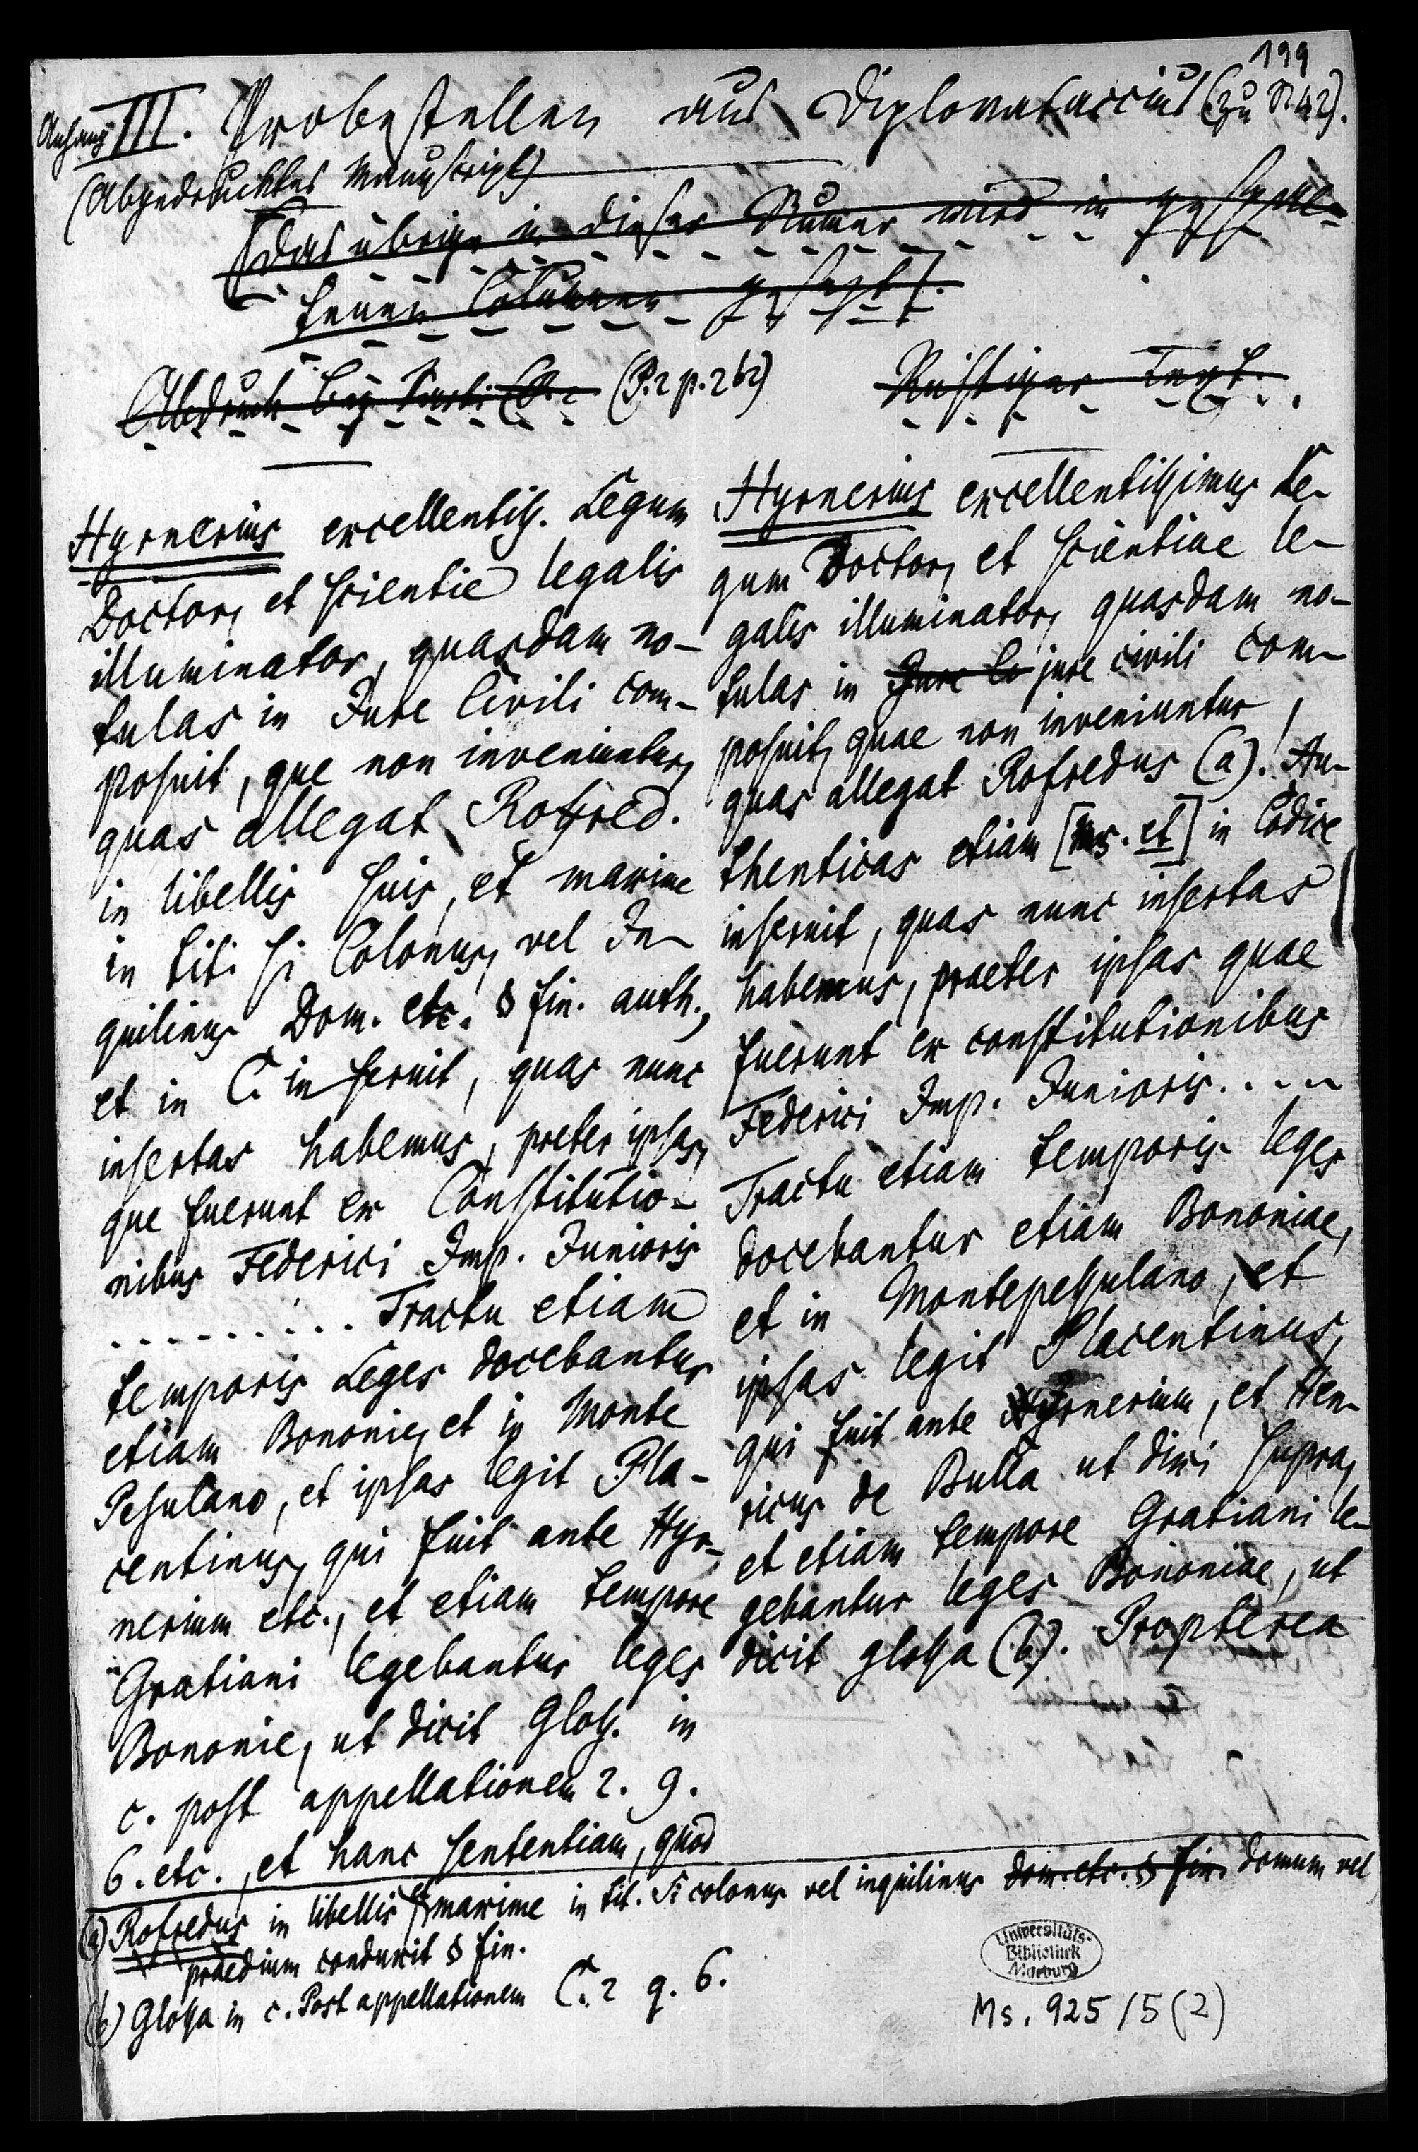 199
Anhang III. Probestellen aus Diplovataccius (Zu N. 42).
(Abgedrucktes Manuscript)
[Das übrige in dieser Numer wird in gespal-
tenen Columnen gesetzt].
Abdruck bey Sarti (P. 2 (P. 2 p. 262)
Hyrnerius excellentiss. Legum
Doctor, et scientie legalis
illuminator, quasdam no-
tulas in Jure Civili com-
posuit, que non inveniuntur,
quas allegat Roffred.
in libellis suis, et maxime
in tit. si Colonus, vel In-
quilinus Dom. etc. § fin. auth.,
et in C. inseruit, quas nunc
insertas habemus, preter ipsas,
que fuerunt ex Constitutio-
nibus Federici Imp. Junioris
. . . . . . . . . Tractu etiam
temporis Leges docebantur
etiam Bononie, et in Monte
Pesulano, et ipsas legit Pla-
centinus, qui fuit ante Hyr-
nerium etc., et etiam tempore
Gratiani legebantur leges
Bononie, ut dicit Gloss. in
c. post appellationem 2. q.
6. etc., et hanc sententiam, quod
Richtiger Text.
Hyrnerius excellentissimus Le-
gum Doctor, et scientiae le-
galis illuminator, quasdam no-
tulas in Jure Ci jure civili com-
posuit, quae non inveniuntur,
quas allegat Rofredus (a). Au-
thenticas etiam [ms. et] in Codice
inseruit, quas nunc insertas
habemus, praeter ipsas quae
fuerunt ex constitutionibus
Federici Imp. Junioris. . . . .
Tractu etiam temporis leges
docebantur etiam Bononiae,
et in Montepessulano, et
ipsas legit Placentinus,
qui fuit ante Yrnerium, et Hen-
ricus de Bulla ut dixi supra,
et etiam tempore Gratiani le-
gebantur leges Bononiae, ut
dicit glossa (b). Propterea
(a) Rofredus in libellis maxime in tit. Si colonus vel inquilinus dom. etc. § fin. domum vel
praedium conduxit § fin.
(b) Glossa in c. Post appellationem C. 2 q. 6.
Universitäts-
Bibliothek
Marburg
Ms. 925/5(2)